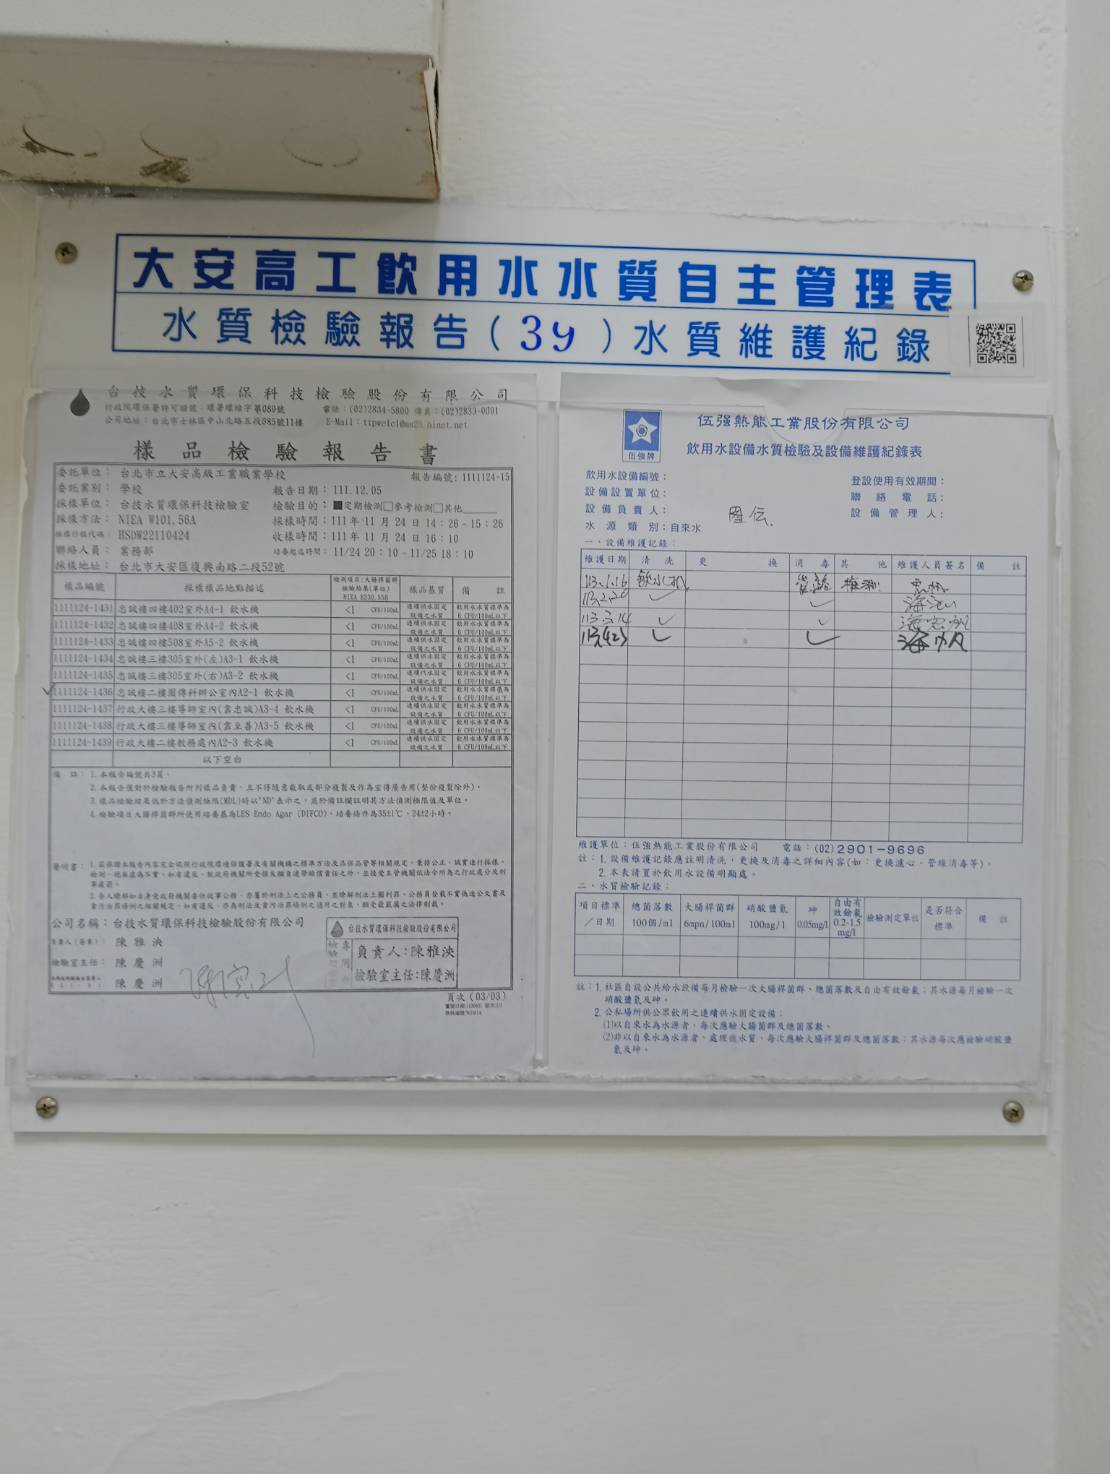 大安高工飲用水水質自主管理表
水質檢驗報告(39)水質維護紀錄
台技水質環保科技檢驗股份有限公司
行政院環保署許可證號：環署環檢字第089號
電話：(02)2834-5800 傳真：(02)2833-0091
公司地址：台北市士林區中山北路五段685號11樓
樣品檢驗報告書
委託單位：台北市立大安高級工業職業學校
報告編號：1111124-15
委託案別：學校
報告日期：111.12.05
採樣單位：台技水質環保科技檢驗室
檢驗目的：■定期檢測□參考檢測□其他
採樣方法：NIEA W101.56A
採樣時間：111年11月24日14:26-15:26
採樣行程代碼：HSDW22110424
收樣時間：111年11月24日16:10
聯絡人員：業務部
培養起迄時間：11/24 20:10-11/25 18:10
採樣地址：台北市大安區復興南路二段52號
樣品編號 採樣樣品地點描述 檢測項目(大腸桿菌群) 檢驗結果(單位) NIEA E230.55B 樣品基質 備註
1111124-1431 忠誠樓四樓402室外A4-1 飲水機 <1 CFU/100mL 連續供水固定設備之水質 飲用水水質標準為6 CFU/100mL以下
1111124-1432 忠誠樓四樓408室外A4-2 飲水機 <1 CFU/100mL 連續供水固定設備之水質 飲用水水質標準為6 CFU/100mL以下
1111124-1433 忠誠樓四樓508室外A5-2 飲水機 <1 CFU/100mL 連續供水固定設備之水質 飲用水水質標準為6 CFU/100mL以下
1111124-1434 忠誠樓三樓305室外(左)A3-1 飲水機 <1 CFU/100mL 連續供水固定設備之水質 飲用水水質標準為6 CFU/100mL以下
1111124-1435 忠誠樓三樓305室外(右)A3-2 飲水機 <1 CFU/100mL 連續供水固定設備之水質 飲用水水質標準為6 CFU/100mL以下
1111124-1436 忠誠樓二樓圖傳科辦公室內A2-1 飲水機 <1 CFU/100mL 連續供水固定設備之水質 飲用水水質標準為6 CFU/100mL以下
1111124-1437 行政大樓三樓導師室內(靠忠誠)A3-4 飲水機 <1 CFU/100mL 連續供水固定設備之水質 飲用水水質標準為6 CFU/100mL以下
1111124-1438 行政大樓三樓導師室內(靠至善)A3-5 飲水機 <1 CFU/100mL 連續供水固定設備之水質 飲用水水質標準為6 CFU/100mL以下
1111124-1439 行政大樓二樓教務處內A2-3 飲水機 <1 CFU/100mL 連續供水固定設備之水質 飲用水水質標準為6 CFU/100mL以下
以下空白
備註：1.本報告編號共3頁。
2.本報告僅對於檢驗報告所列樣品負責，且不得隨意截取或部分複製及作為宣傳廣告用(整份複製除外)。
3.樣品檢驗結果低於方法偵測極限(MDL)時以"ND"表示之，並於備註欄註明其方法偵測極限值及單位。
4.檢驗項目大腸桿菌群所使用培養基為LES Endo Agar (DIFCO)，培養條件為35±1℃、24±2小時。
公司名稱：台技水質環保科技檢驗股份有限公司
陳雅泱
檢驗室主任：陳慶洲
陳慶洲
台技水質環保科技檢驗股份有限公司
負責人：陳雅泱
檢驗室主任：陳慶洲
頁次(03/03)
伍強牌
伍強熱能工業股份有限公司
飲用水設備水質檢驗及設備維護紀錄表
飲用水設備編號：
登設使用有效期間：
設備設置單位：
聯絡電話：
設備負責人：
設備管理人：
水源類別：自來水
一、設備維護記錄：
維護日期 清洗 更換 消毒 其他 維護人員簽名 備註
113.1.16
113.3.14
維護單位：伍強熱能工業股份有限公司 電話：(02)2901-9696
註：1.設備維護記錄應註明清洗，更換及消毒之詳細內容(如：更換濾心、管線消毒等)。
2.本表請置於飲用水設備明顯處。
二、水質檢驗記錄：
項目標準/日期 總菌落數100個/ml 大腸桿菌群6mpn/100ml 硝酸鹽氮100mg/l 砷0.05mg/l 自由有效餘氯0.2-1.5mg/l 檢驗測定單位 是否符合標準 備註
註：1.社區自設公共給水設備每月檢驗一次大腸桿菌群、總菌落數及自由有效餘氯；其水源每月檢驗一次硝酸鹽氮及砷。
2.公私場所供公眾飲用之連續供水固定設備：
(1)以自來水為水源者，每次應驗大腸菌群及總菌落數。
(2)非以自來水為水源者，處理後水質，每次應驗大腸桿菌群及總菌落數；其水源每次應檢驗硝酸鹽氮及砷。